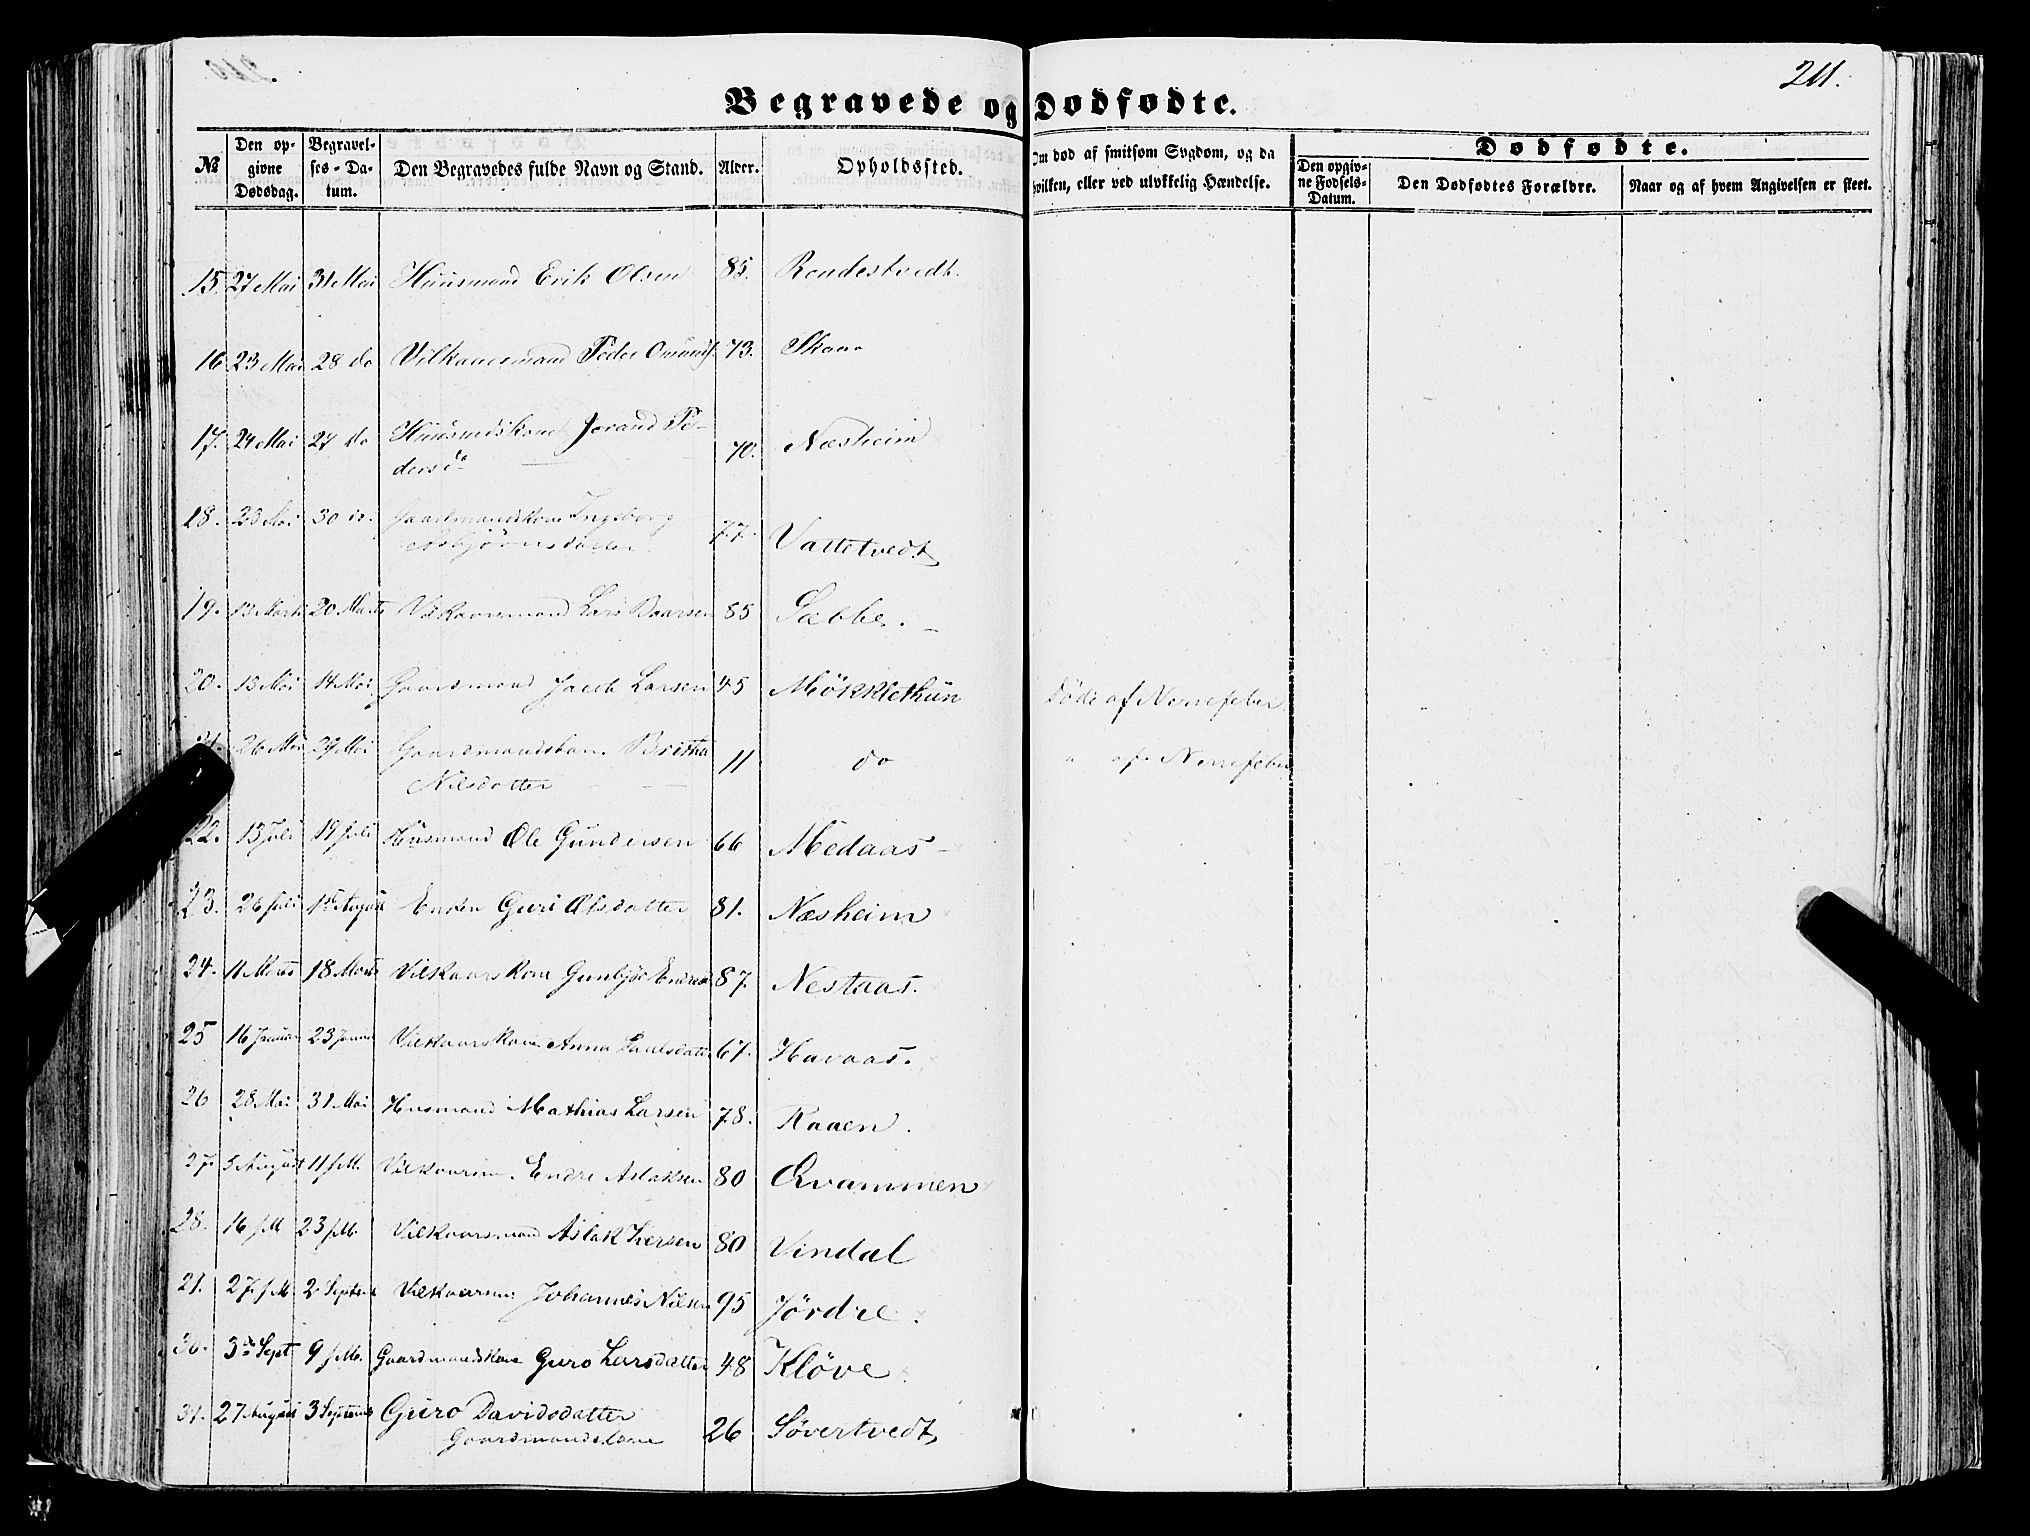 211.
Begravede og Dødfødte.
№
Den op-
givne
Dødsdag.
Begravel-
ses-Da-
tum.
Den Begravedes fulde Navn og Stand.
Alder.
Opholdssted.
Om død af smitsom Sygdom, og da
hvilken, eller ved ulykkelig Hændelse.
Dødfødte.
Den opgiv-
ne Fødsels-
Datum.
Den Dødfødtes Forældre.
Naar og af hvem Angivelsen er skeet.
15. 27 Mai 31 Mai Huusmand Erik Olsen 85. Rondestvedt.
16 23 Mai 28 do Vilkaarsmand Peder 73.
17. 24 Mai 27 do Huusmdskone Jorand Pe- 70. Næsheim
dersd
18. 23 Mai 30 Gaardmandskone Ingeborg 77. Vattetvedt
Asbjørnsdatter
19. 13 Marts 20 Marts Vilkaarsmand Lars Baarsen 85 Sæbbe.
20. 13 Mai 14 Mai Gaardmand Jacob Larsen 45 Møkklethun Døde af Nervefeber
26 Mai 29 Mai Gaardmandskone Britha 11 do " af Nervefeber
Nilsdatter
22. 13 Juli 19 Juli Husmand Ole Gundersen 66 Medaas
23. 26 Juli 1st August Enken Guri Olsdatter 81. Næsheim
24. 11 Marts 18 Marts Vilkaarskone Gunbjør 87. Nestaas.
25 16 Januar 23 Januar Vilkaarskone Anna Paulsdatter 67. Havaas.
26 28 Mai 31 Mai Husmand Mathias Larsen 78. Raaen.
27. 5 August 11 s.M. Vilkaarsm. Endre Aslaksen 80 Qvammen
28. 16 s.M 23 s.M. Vilkaarsmand Aslak Iversen 80 Vindal
21. 27. s.M 2 Septemb Vilkaarsm Johannes Nilsen 95 Jørdre.
30. 3die Sept 9 s.M. Gaardmandskone Guro Larsdatter 48 Kløve
31. 27 August 3 Septemb Guro Davidsdatter 26 Søvertvedt
Gaardmandskone